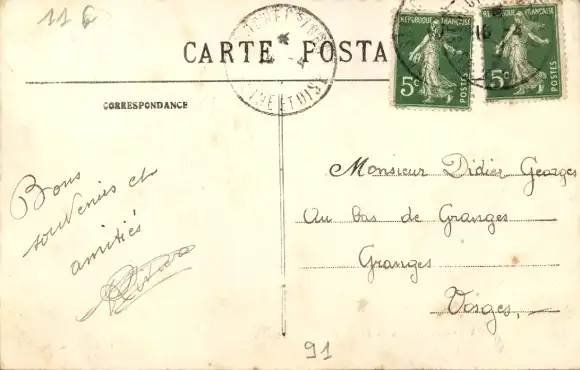 11 €
CARTE POSTA
RÉPUBLIQUE FRANÇAISE
5c
POSTES
RÉPUBLIQUE FRANÇAISE
5c
POSTES
CORRESPONDANCE
Bons
souvenirs et
amitiés
Monsieur Didier Georges
Au bas de Granges
Granges
Vosges,
91